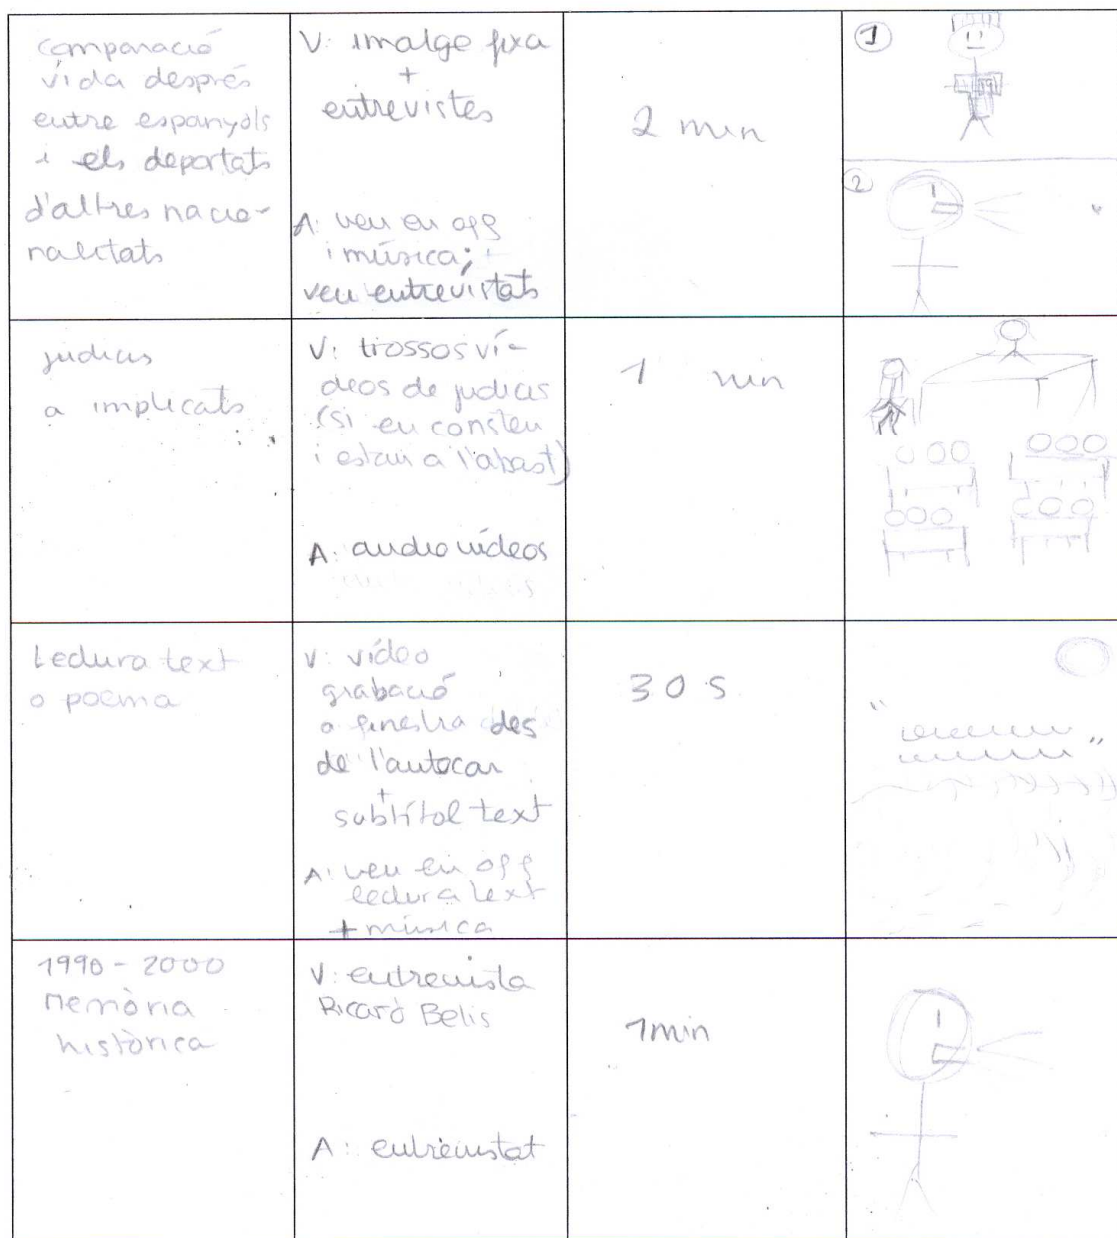 comparació
vida després
entre espanyols
i els deportats
d'altres nacio-
nalitats
V: imatge fixa
+
entrevistes
A: veu en off
i música;
veu entrevistats
2 min
1
2
judicis
a implicats
V: trossos ví-
deos de judicis
(si en consten
i estan a l'abast)
A: audio vídeos
1 min
Lectura text
o poema
V: vídeo
grabació
a finestra des
de l'autocar
+
subtítol text
A: veu en off
lectura text
+ música
30 s
1990 - 2000
Memòria
històrica
V: entrevista
Ricard Belis
A: entrevistat
1 min